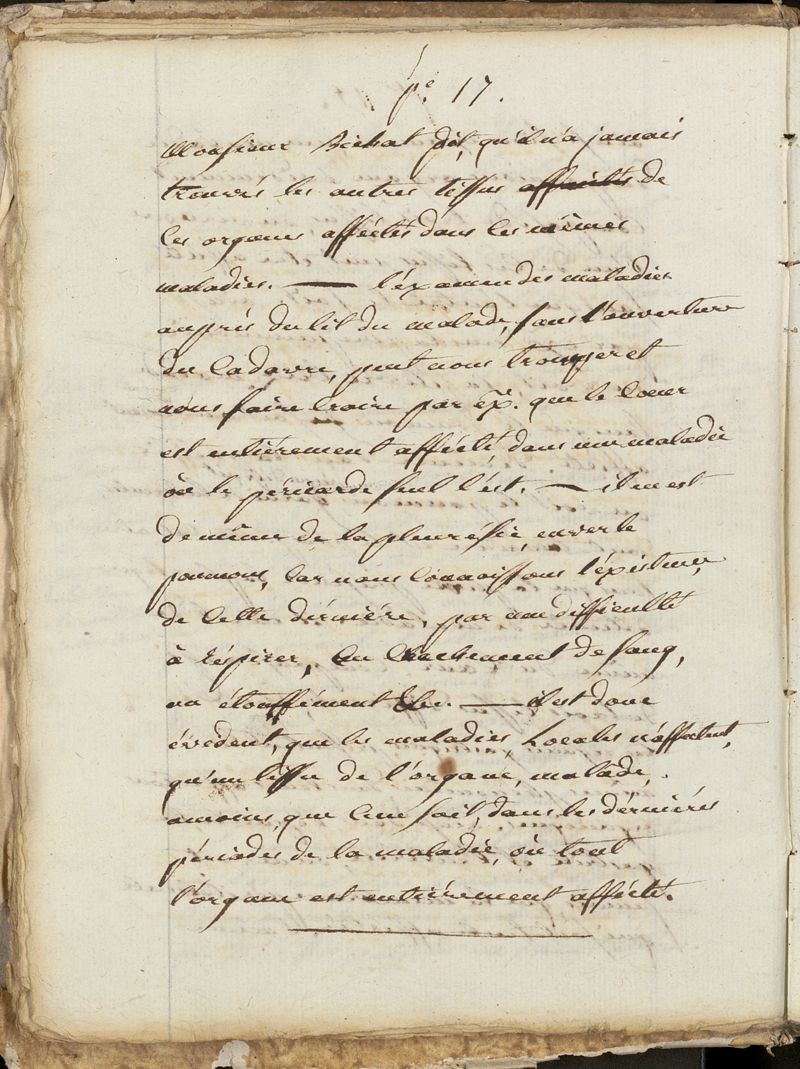 pe. 17.
Monsieur Bichat dit, qu'il n'a jamais
trouvés les autres tissus affectés de
ces organes affectés dans les mêmes
maladies. — l'éxamen des maladies
auprés du lit du malade, sans l'ouverture
du Cadavre, peut nous tromper et
nous faire Craire par Ex. que le Coeur
est entiérement affécté, dans une maladie
où le péricarde seul l'est. — il en est
de même de la pleurésie, envers le
poumons, Car nous Connoissons l'éxistence,
de Cette dérniére, par une difficulté
à réspirer, un Crachement de sang,
un étouffément &c. — il est donc
évedent, que les maladies Locales n'affectent,
qu'un tissu de l'organe, malade,
amoins, que Ce ne soit, dans les dérniéres
périodes de la maladie, où tout
l'organe est entiérement affécté.